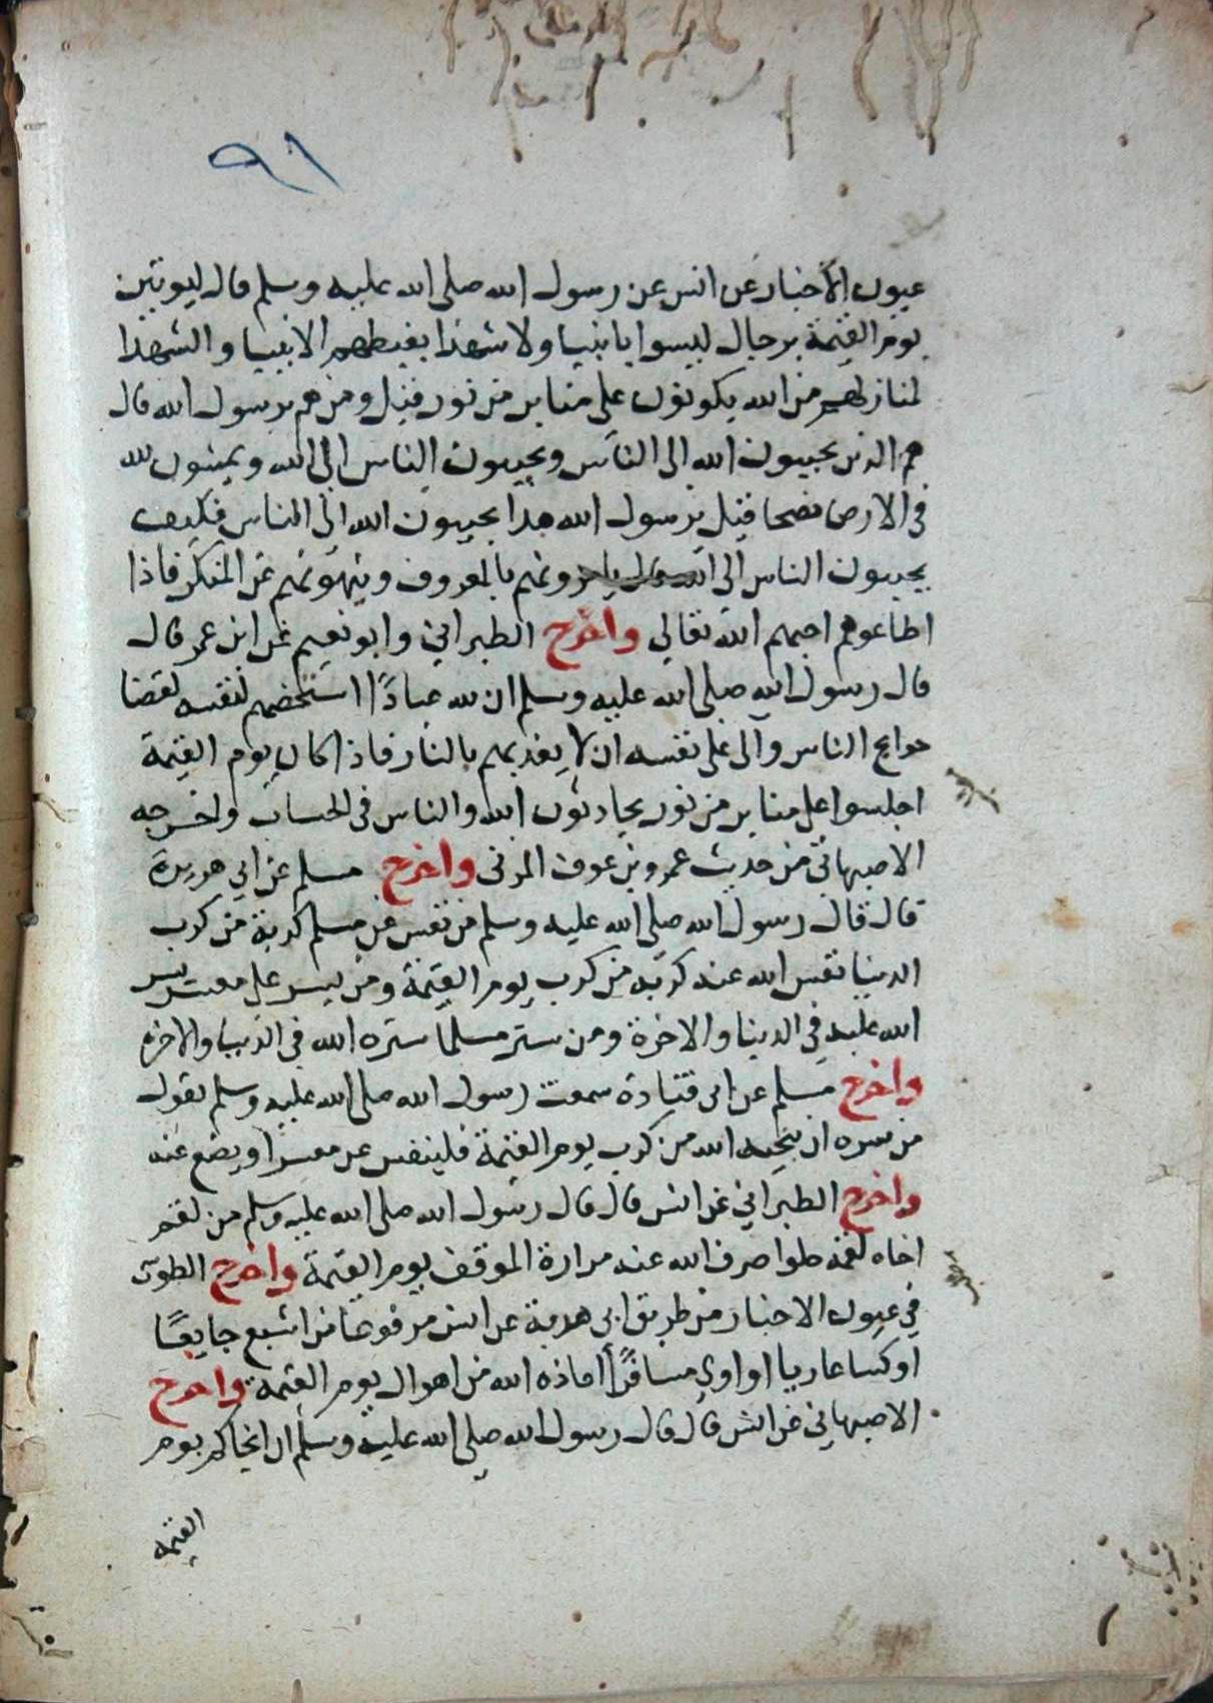 ٩١
عيون الأخبار عن انس عن رسول الله صلى الله عليه وسلم قال ليوتين
يوم القيمة برجال ليسوا بانبيا ولا شهدا يغبطهم الانبيا والشهدا
لمنازلهم من الله يكونون على منابر من نور فقيل ومن هم يرسول الله قال
هم الذين يحببون الله الى الناس ويحببون الناس الى الله ويمشون لله
في الارض نصحا قيل يرسول الله هذا يحببون الله الى الناس فكيف
يحببون الناس الى الله قال يامرونهم بالمعروف وينهونهم عن المنكر فاذا
اطاعوهم احبهم الله تعالي واخرج الطبراني وابو نعيم عن ابن عمر قال
قال رسول الله صلى الله عليه وسلم ان لله عبادًا استخصهم لنفسه لقضا
حوايج الناس وآلى على نفسه ان لا يعذبهم بالنار فاذا كان يوم القيمة
اجلسوا على منابر من نور يحادثون الله والناس في الحساب واخرجه
الاصبهاني من حديث عمرو بن عوف المزنى واخرج مسلم عن ابي هريرة
قال قال رسول الله صلى الله عليه وسلم من نفس عن مسلم كربة من كرب
الدنيا نفس الله عنه كربه من كرب يوم القيمة ومن يسر على معسر يسر
الله عليه في الدنيا والاخرة ومن ستر مسلما ستره الله في الدنيا والاخرة
واخرج مسلم عن ابى قتادة سمعت رسول الله صلى الله عليه وسلم يقول
من سره ان ينجيه الله من كرب يوم القيمة فلينفس عن معسرا ويضع عنه
واخرج الطبراني عن انس قال قال رسول الله صلى الله عليه وسلم من لقم
اخاه لقمة حلوا صرف الله عنه مرارة الموقف يوم القيمة واخرج الطوسى
في عيون الاخبار من طريق ابى هدبة عن انس مرفوعا من اشبع جايعًا
او كسا عاريا او اوي مسافرًا اعاذه الله من اهوال يوم القيمة واخرج
الاصبهاني عن انس قال قال رسول الله صلى الله عليه وسلم ان انجاكم يوم
القيمة